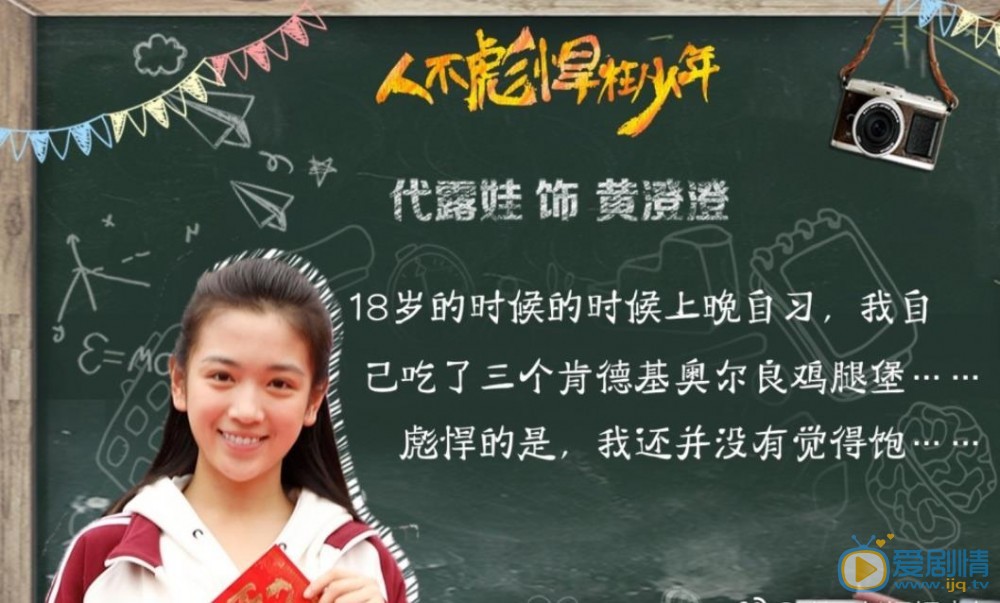 人不彪悍枉少年
代露娃 饰 黄澄澄
18岁的时候的时候上晚自习，我自
己吃了三个肯德基奥尔良鸡腿堡……
彪悍的是，我还并没有觉得饱……
爱剧情
www.ijq.tv